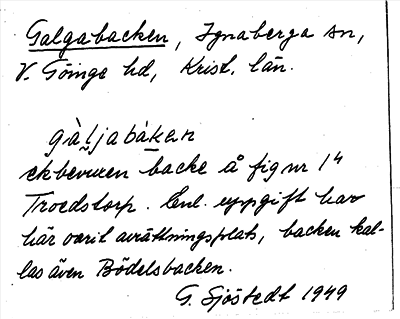 Galgabacken, Ignaberga sn,
V. Göinge hd, Krist. län.
gàljabàkan
ekbevuxen backe å fig nr 1⁴
Troedstorp. Enl. uppgift har
här varit avrättningsplats, backen kal-
las även Bödelsbacken.
G. Sjöstedt 1949